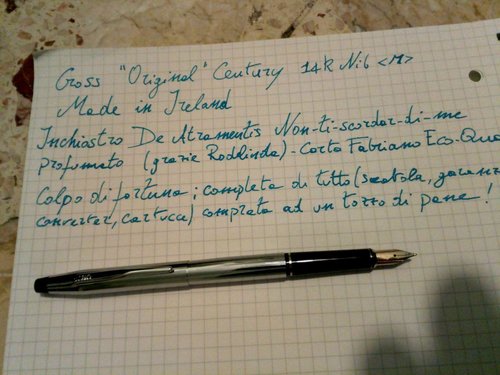 Cross "Original" Century 14K Nib <M>
Made in Ireland
Inchiostro De Atramentis Non-ti-scordar-di-me
profumato (grazie Rodhlinda) - Carta Fabriano Eco-Qua
Colpo di fortuna: completa di tutto (scatola, garanz
converter, cartucce) comprata ad un tozzo di pane!